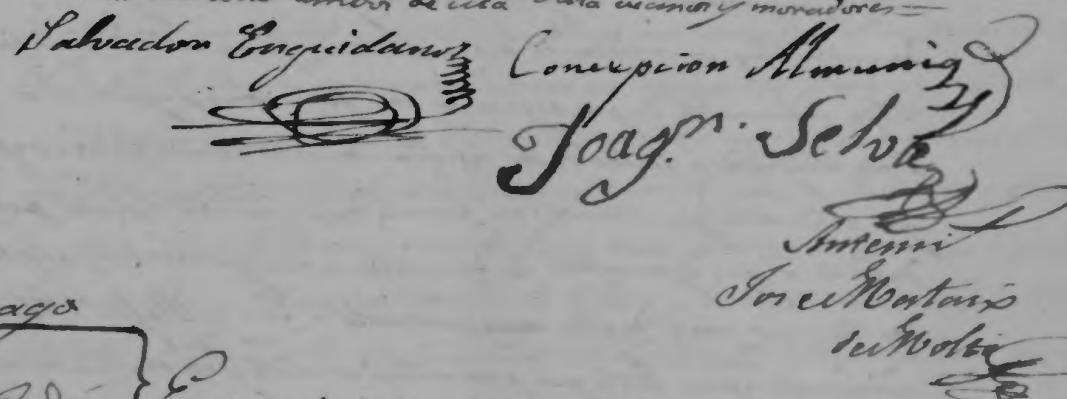 ambos de esta vecinos y moradores=
Salvador Enguidanos
Concepcion Almunia
Joaqn. Selva
Antemi
Jose Mataix
de Molto